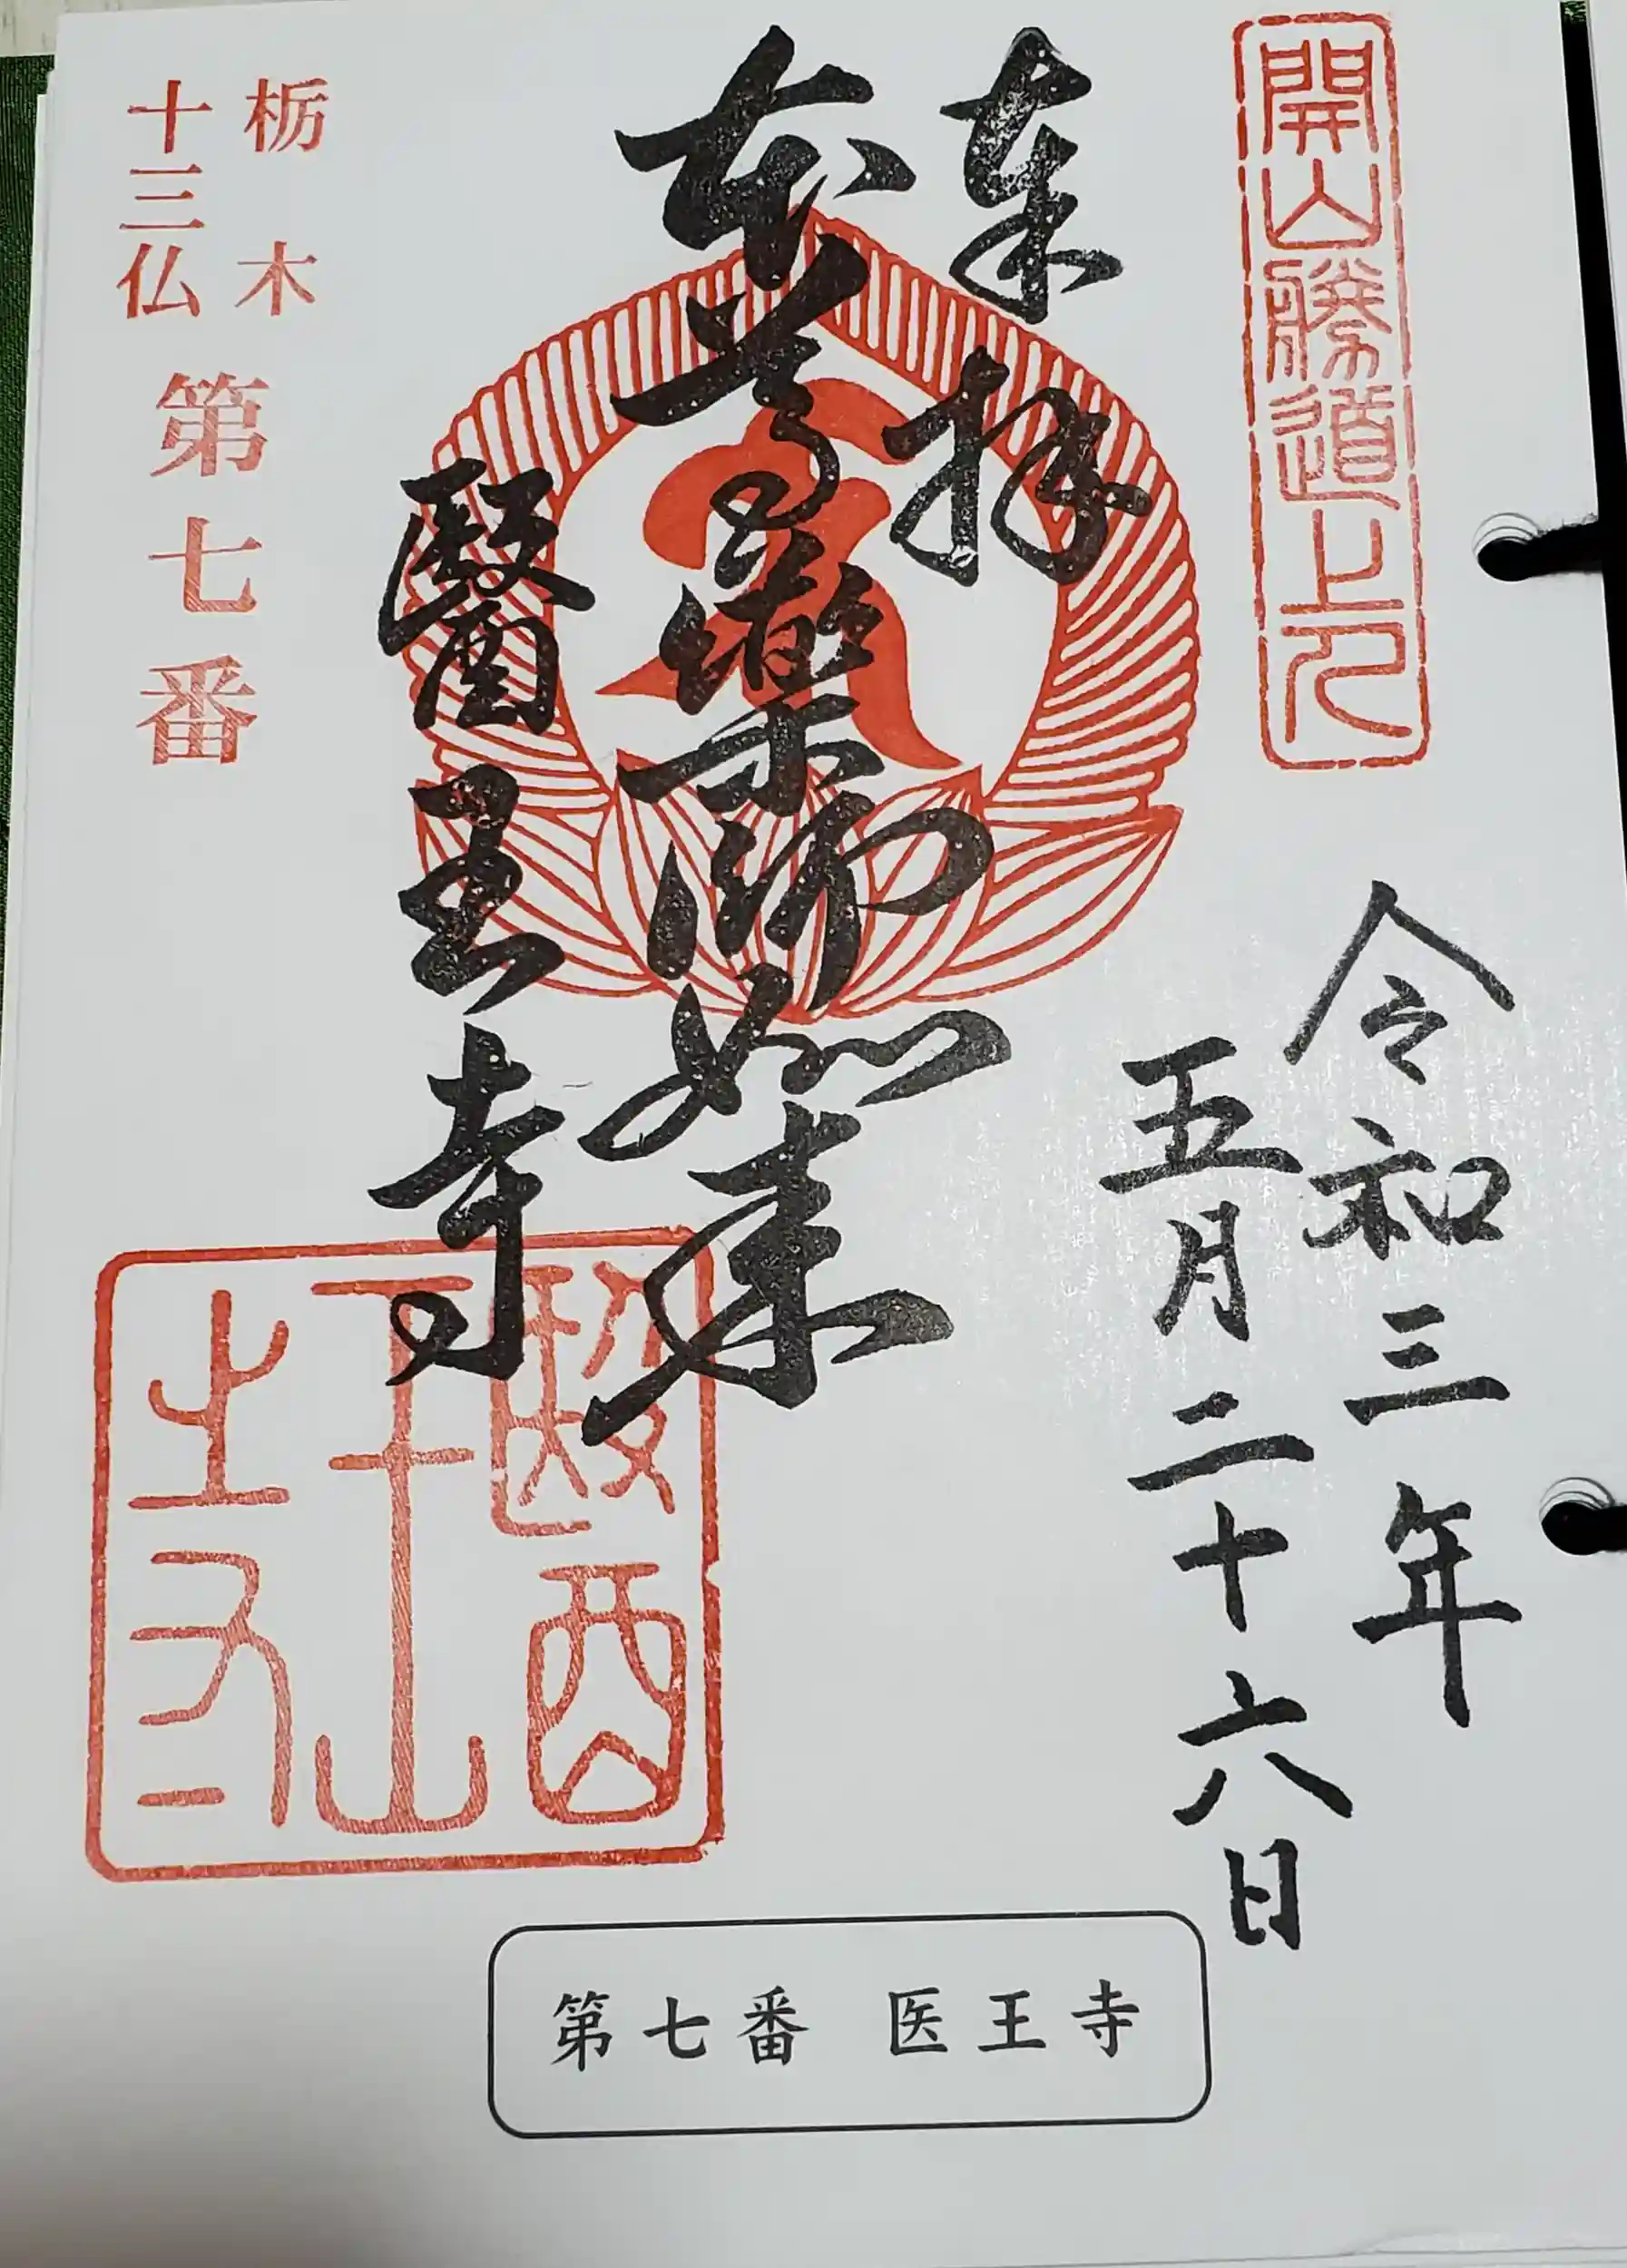 開山勝道上人
令和三年
五月二十六日
奉拝
本尊藥師如来
醫王寺
栃木
十三仏
第七番
第七番 医王寺